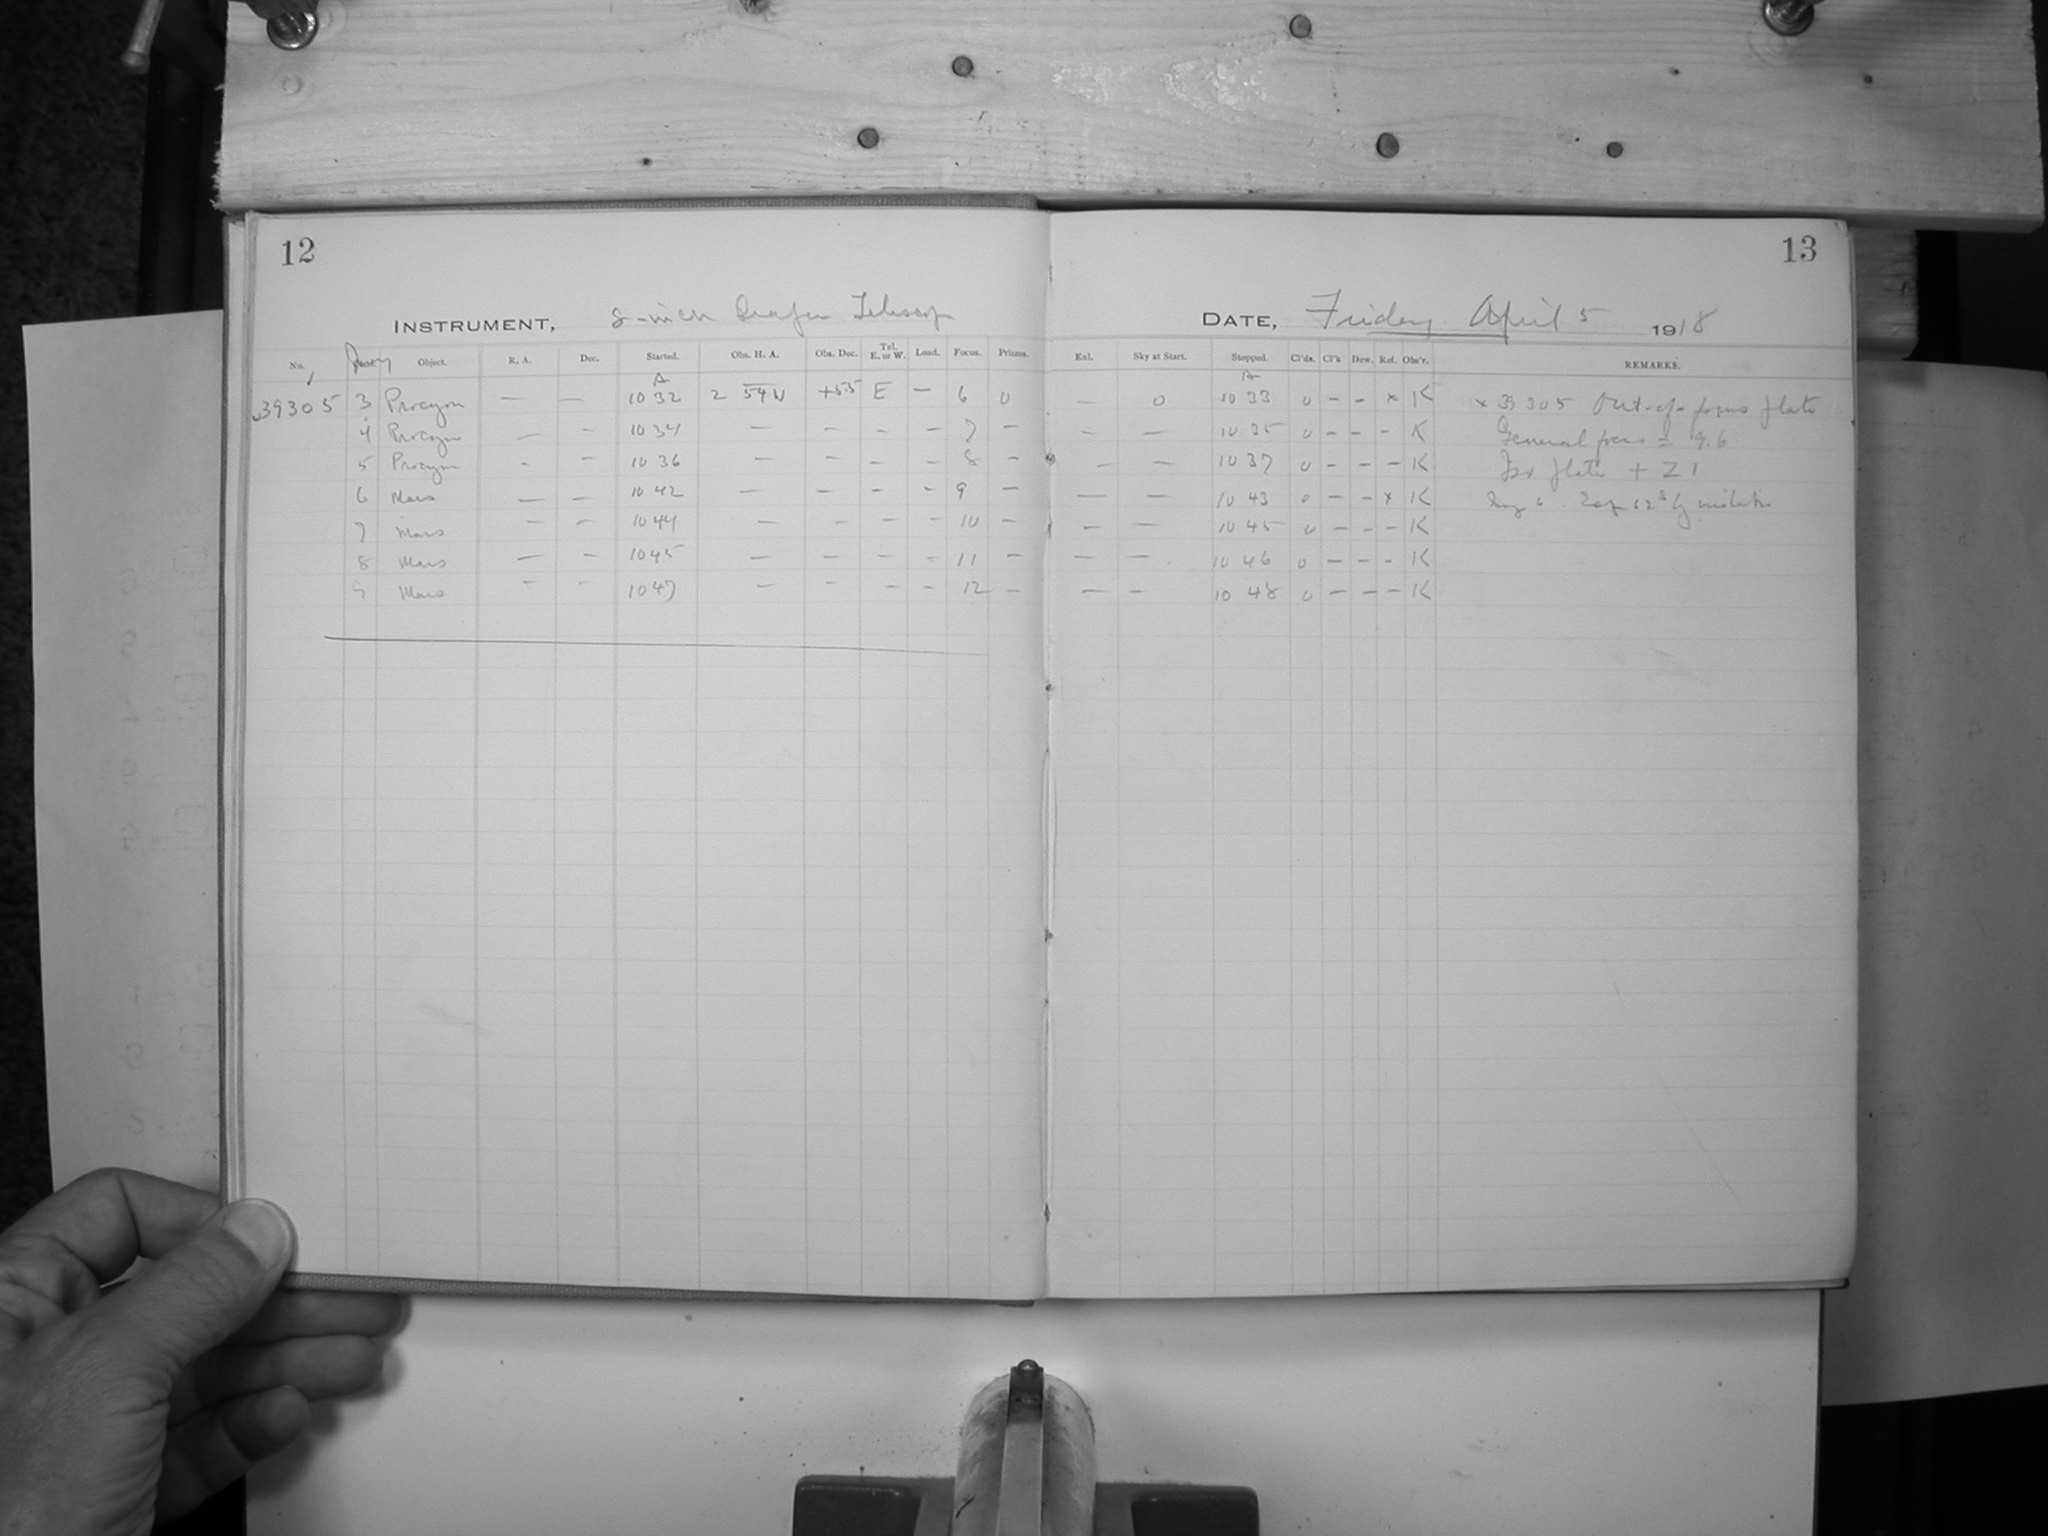 12
13
INSTRUMENT, 8-inch Draper Telescop
DATE, Friday April 5 1918
No. Object. R. A. Dec. Started. Obs. H. A. Obs. Dec. Tel. E. or W. Load. Focus. Prisms. Exl. Sky at Start. Stopped. Cl'ds. Cl'k Dew. Ref. Obs'r. REMARKS.
A A
39305 3 Procyon — — 10 32 2 54 W +5.5 E — 6 0 — 0 10 33 0 – – x K x 39305 Out-of-focus plate
4 Procyon — – 10 34 — – – – 7 – – — 10 35 0 – – – K General focus = 9.6
5 Procyon – – 10 36 — – – – 8 – – — 10 37 0 – – – K For plate + 21
6 Mars — — 10 42 — – – – 9 – — — 10 43 0 – – x K
7 Mars – – 10 44 — – – – 10 – – — 10 45 0 – – – K
8 Mars — – 10 45 — – – – 11 – — — 10 46 0 – – – K
9 Mars – – 10 47 — – – – 12 – — – 10 48 0 – – – K